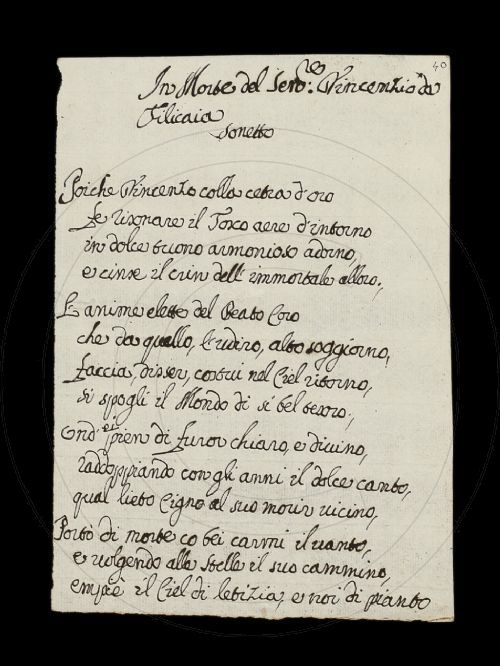 40
In Morte del Sen.re Vincenzio da
Filicaia
Sonetto
Poiche Vincenzo colla cetra d'oro
fe risonare il Tosco aere d'intorno
in dolce suono armonioso adorno,
e cinse il crin dell' immortale alloro;
Le anime elette del Beato Coro
che da quello, l'udiro, alto soggiorno,
faccia, disser, costui nel Ciel ritorno,
si spogli il Mondo di sì bel tesoro;
Ond' ei pien di furor chiaro, e divino,
raddoppiando con gli anni il dolce canto,
qual lieto Cigno al suo morir vicino,
Portò di morte co bei carmi il vanto,
e volgendo alle stelle il suo cammino,
empiè il Ciel di letizia, e noi di pianto